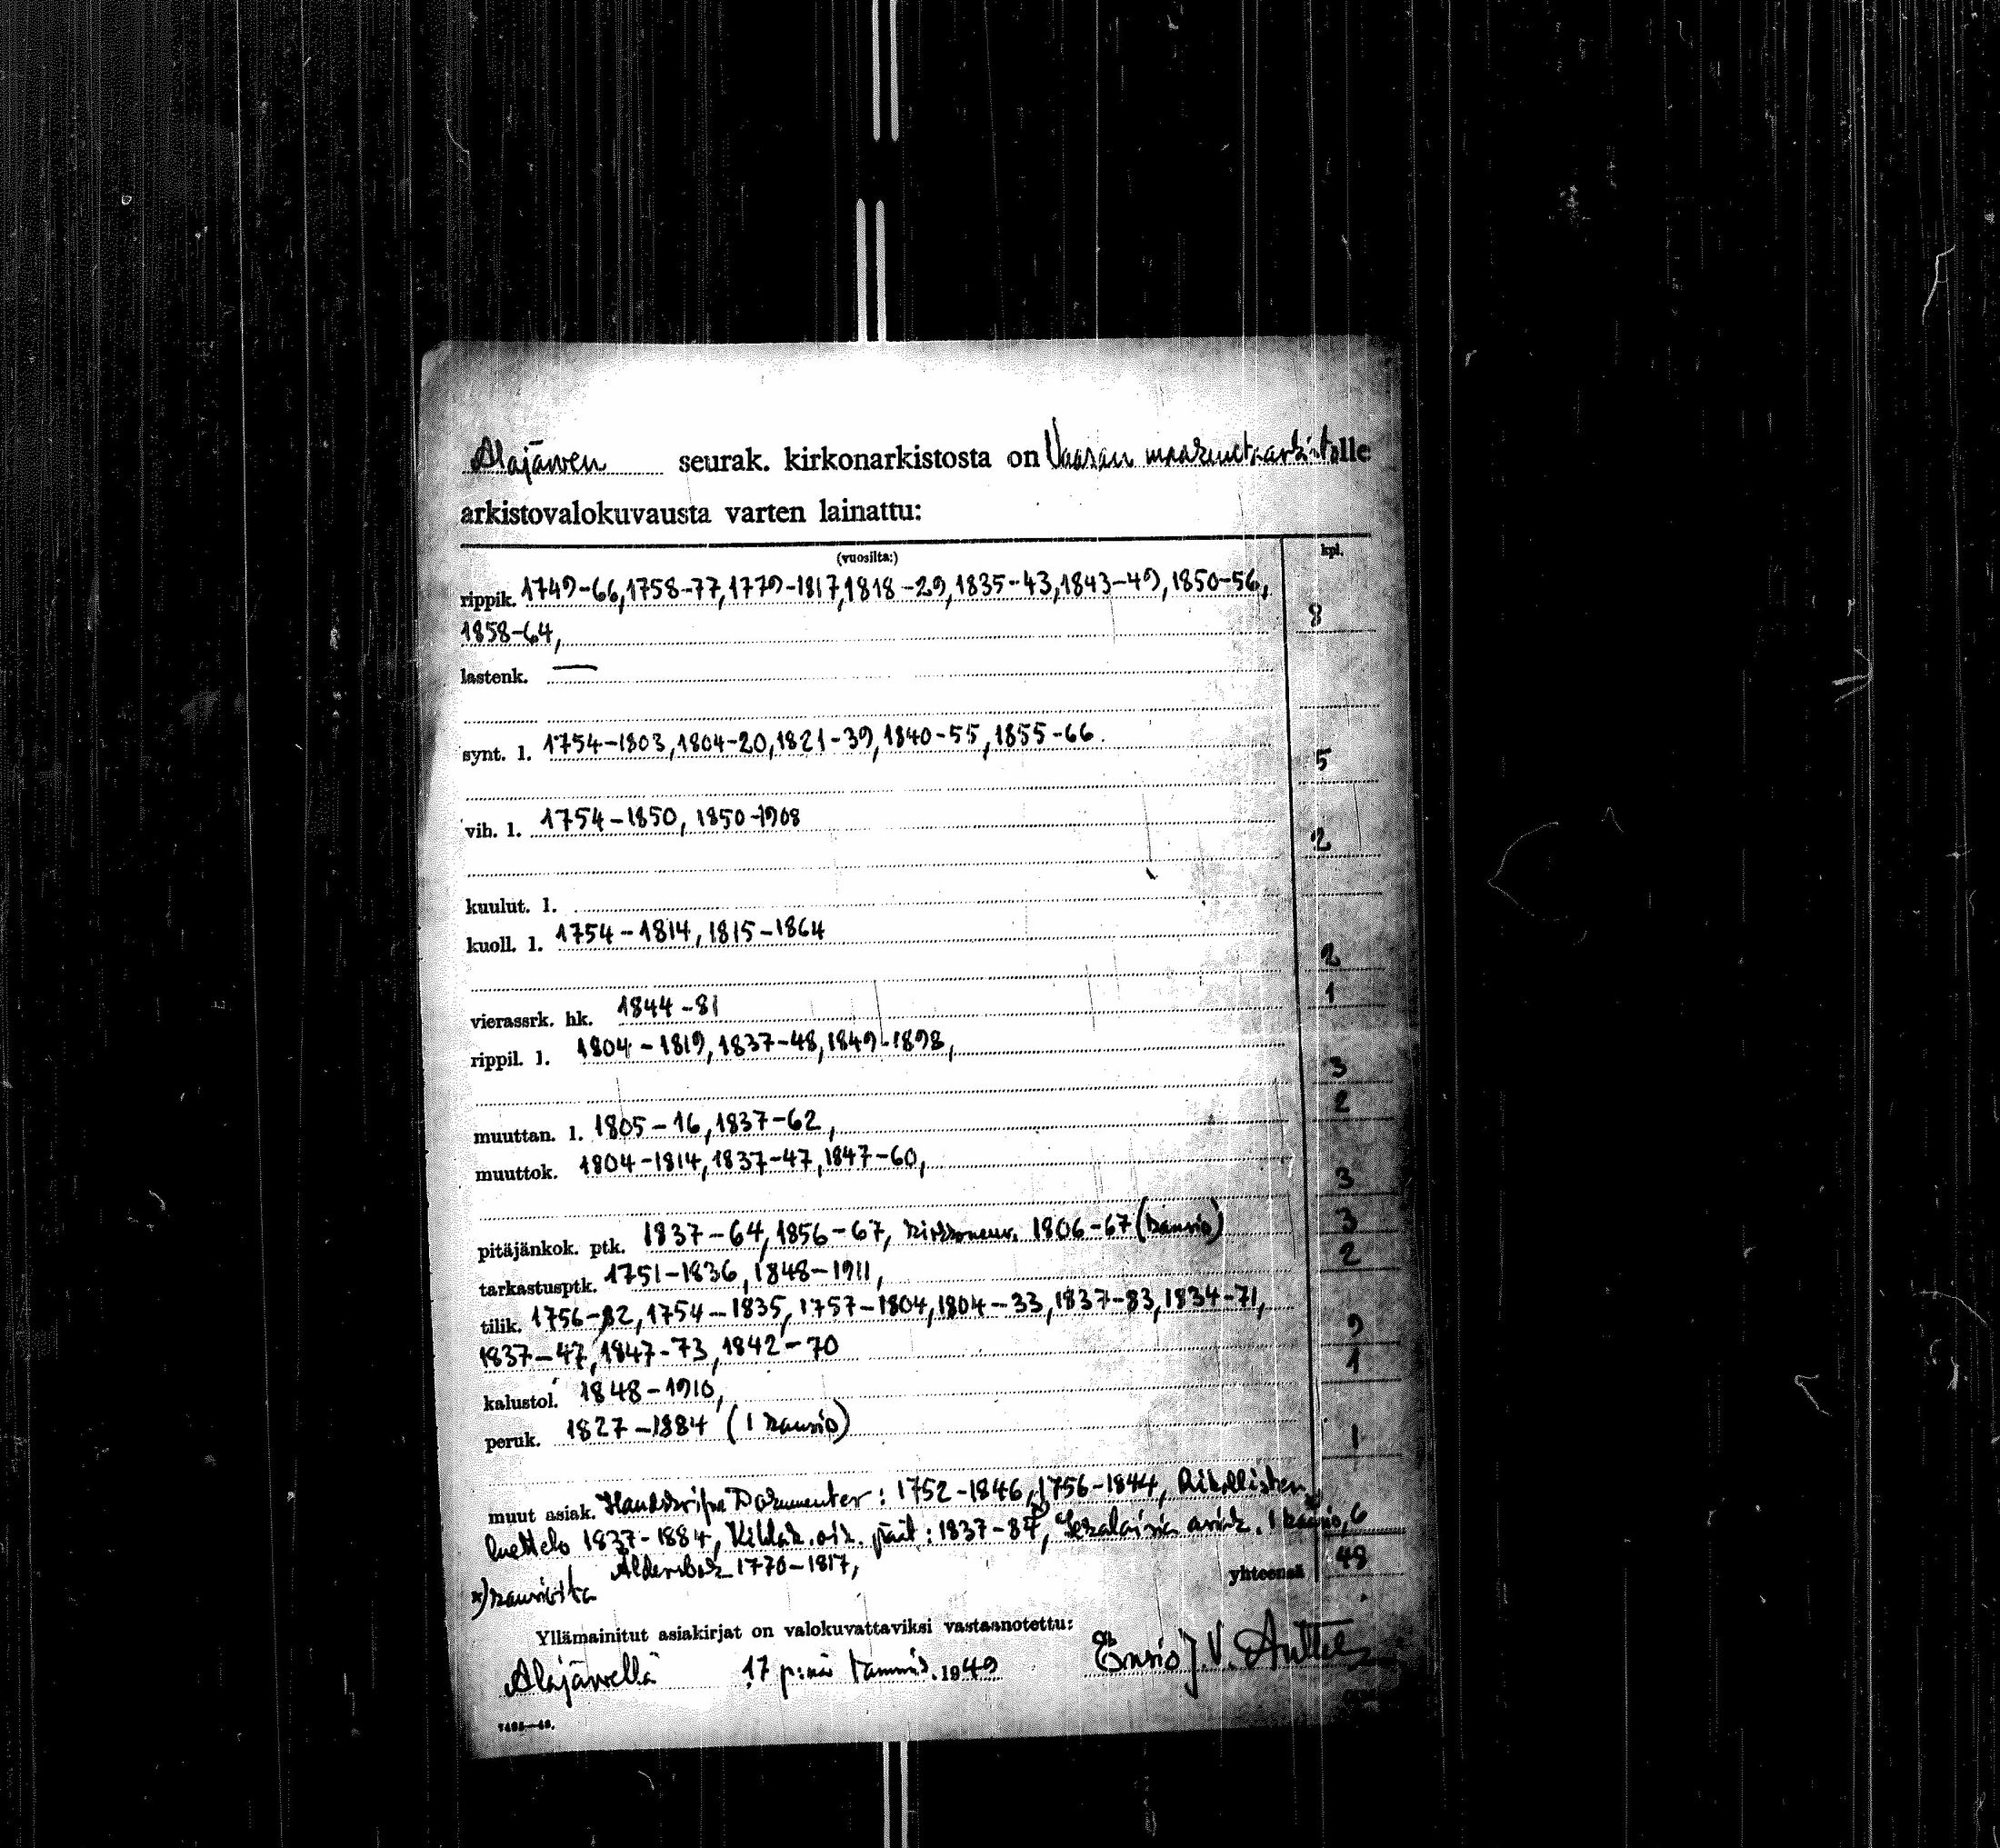 Alajärven seurak. kirkonarkistosta on Vaasan maakunta-arkistolle
arkistovalokuvausta varten lainattu:
(vuosilta:) kpl.
rippik. 1749-66, 1758-77, 1779-1817, 1818-29, 1835-43, 1843-49, 1850-56,
1858-64, 8
lastenk. —
synt. l. 1754-1803, 1804-20, 1821-39, 1840-55, 1855-66. 5
vih. l. 1754-1850, 1850-1908 2
kuulut. l.
kuoll. l. 1754-1814, 1815-1864 2
vierassrk. hk. 1844-81 1
rippil. l. 1804-1819, 1837-48, 1849-1898, 3
muuttan. l. 1805-16, 1837-62, 2
muuttok. 1804-1814, 1837-47, 1847-60, 3
pitäjänkok. ptk. 1837-64, 1856-67, kirkkoneuv. 1806-67 (kansio) 3
tarkastusptk. 1751-1836, 1848-1911, 2
tilik. 1756-82, 1754-1835, 1757-1804, 1804-33, 1837-83, 1834-71,
1837-47, 1847-73, 1842-70 9
kalustol. 1848-1910, 1
peruk. 1827-1884 (1 kansio) 1
muut asiak. Handskrifna Dokumenter: 1752-1846, 1756-1844, Rikollisten
luettelo 1837-1884, Kihlak. oik. päät: 1837-87, Sekalaisia asiak. 1 kansio, 6
Åldersbok 1770-1817,
x) kansiota
yhteensä 48
Yllämainitut asiakirjat on valokuvattaviksi vastaanotettu:
Alajärvellä 17 p:nä tammik. 1949 Ensio J. V.
7495—48.